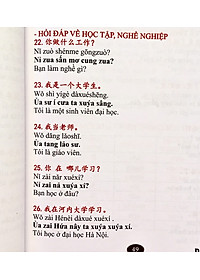 - HỎI ĐÁP VỀ HỌC TẬP, NGHỀ NGHIỆP
22. 你做什么工作？
Nǐ zuò shénme gōngzuò?
Nỉ zua sẩn mơ cung zua?
Bạn làm nghề gì?
23. 我是一个大学生。
Wǒ shì yígè dàxuéshēng.
Ủa sư í cưa ta xuýa sâng.
Tôi là một sinh viên đại học.
24. 我当老师。
Wǒ dāng lǎoshī.
Ủa tang lảo sư.
Tôi là giáo viên.
25. 你 在 哪儿学习？
Nǐ zài nǎr xuéxí?
Nỉ zai nả xuýa xí?
Bạn học ở đâu?
26. 我在河内大学学习。
Wǒ zài Hénèi dàxué xuéxí .
Ủa zai Hứa nây ta xuýa xuýa xí.
Tôi học ở đại học Hà Nội.
49